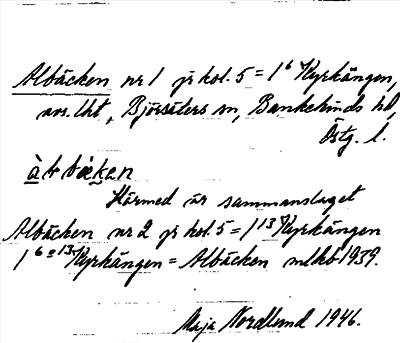 Albäcken nr 1 jr kol. 5 = 1⁶ Kyrkängen,
avs. lht, Björsäters sn, Bankekinds hd,
Östg. l.
àbbæken
Härmed är sammanslaget
Albäcken nr 2 jr kol. 5 = 1¹³ Kyrkängen
1⁶⁺¹³ Kyrkängen = Albäcken mlkb 1939.
Maja Nordlund 1946.